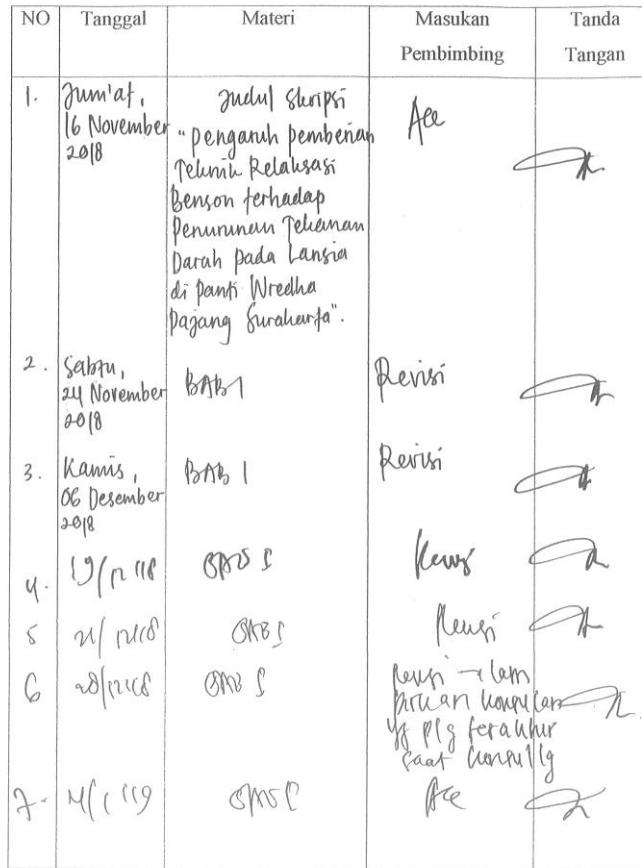 NO Tanggal Materi Masukan Pembimbing Tanda Tangan
1. Jum'at, 16 November 2018
Judul Skripsi
"Pengaruh pemberian
Teknik Relaksasi
Benson terhadap
Penurunan Tekanan
Darah pada Lansia
di Panti Wredha
Pajang Surakarta".
Acc
2. Sabtu, 24 November 2018
BAB 1
Revisi
3. Kamis, 06 Desember 2018
BAB 1
Revisi
4. 19/12 18
BAB I
Revisi
5 21/12/18
BAB I
Revisi
6 28/12/18
BAB I
Revisi → lam
pirkan
yg plg terakhir
saat
7.
BAB I
Acc